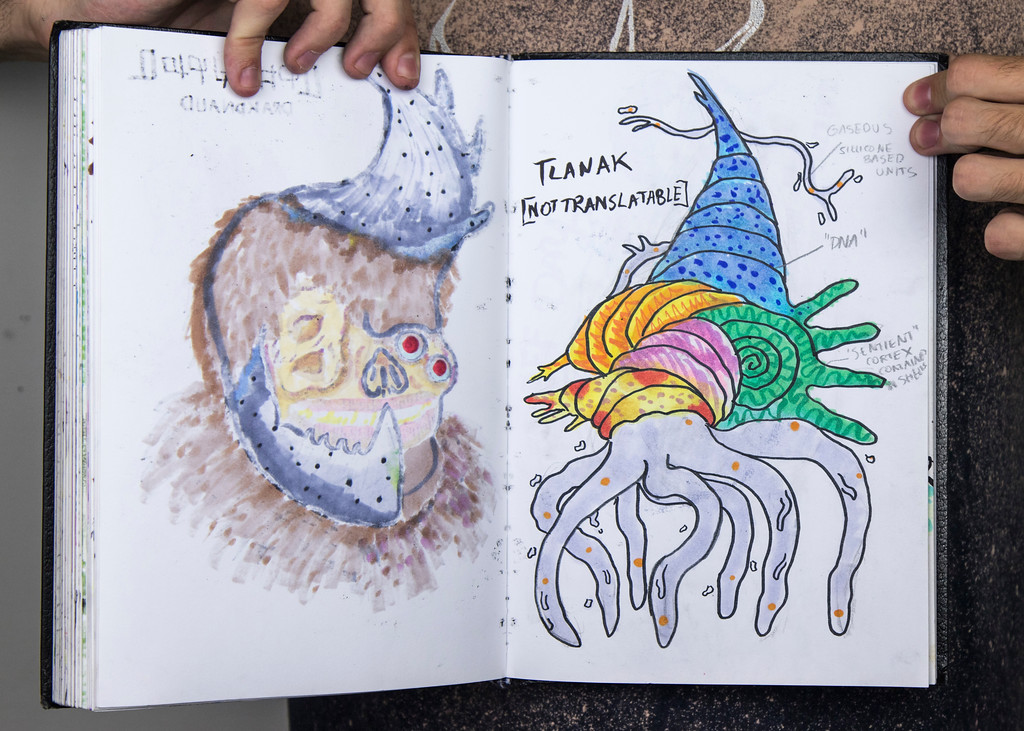 TLANAK
[NOT TRANSLATABLE]
GASEOUS
"SILLICONE
BASED
UNITS
"DNA"
"SENTIENT"
CORTEX
CONTAINED
SHELL